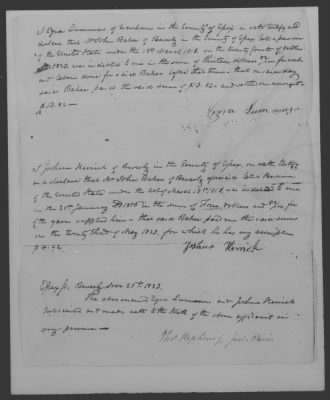 I Ezra Lummus of Wenham in the County of Essex on oath testify and
declare that Mr John Baker of Beverly in the County of Essex late a pensioner
of the United States under the law of March 1818 on the twenty fourth of
1823, was indebted to me in the sum of thirteen dollars
and labour done for said Baker before that time – that on said day
said Baker paid the said sum of $13.82 – and settled
$13.82 –
Ezra Lummus
I Joshua Herrick of Beverly in the County of Essex, on oath testify
and declare that Mr John Baker of Beverly aforesaid late a Pensioner
of the United States under the of March 18th 1818 was indebted to me
on the 20th January in the sum of Four dollars and
supplied him – that said Baker paid me the same
on the twenty third of May 1823, for which he has my receipt
$4.92
Joshua Herrick
Essex ss. Beverly Nov 25th 1823.
The above named Ezra Lummus and Joshua Herrick
subscribed and made oath to the truth of the above affidavit in
my presence –
Tho. Stephens Jus. Peace